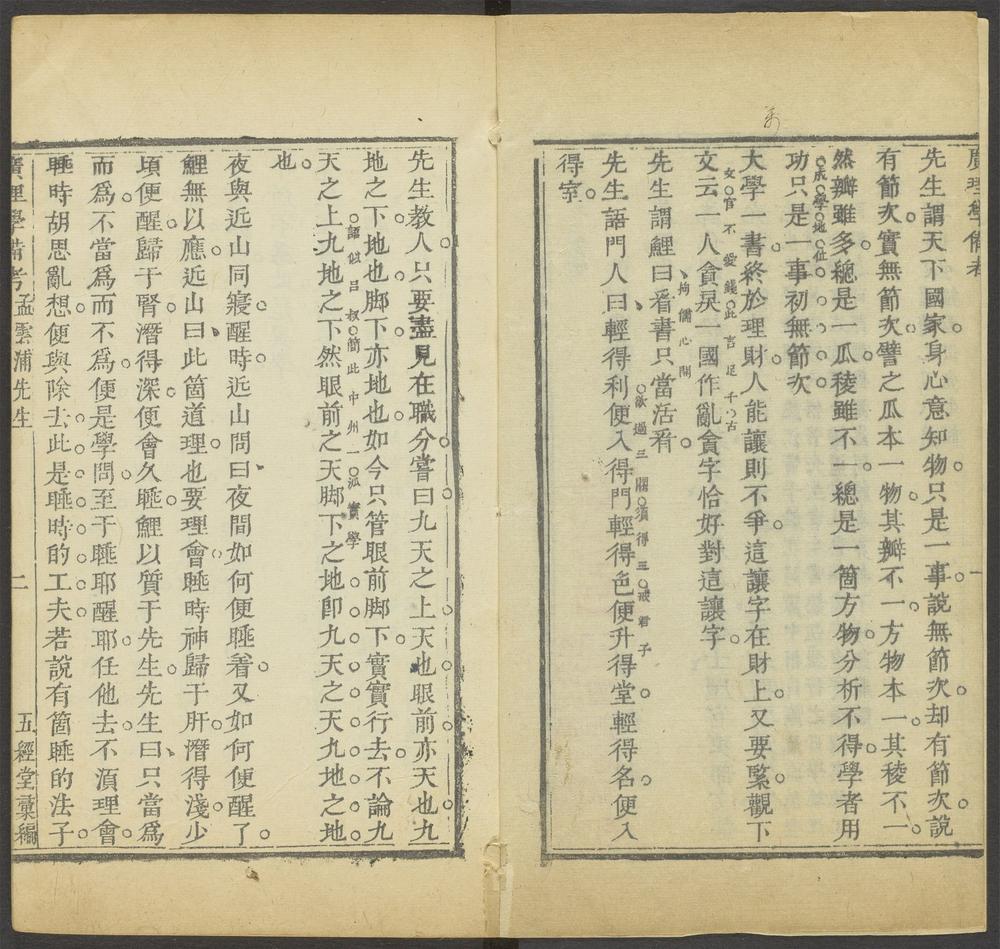 廣理學備考
一
先生謂天下國家身心意知物只是一事說無節次却有節次說
有節次實無節次譬之瓜本一物其瓣不一方物本一其稜不一
然瓣雖多總是一瓜稜雖不一總是一箇方物分析不得學者用
功只是一事初無節次
成學地位
大學一書終於理財人能讓則不爭這讓字在財上又要緊觀下
文云一人貪戾一國作亂貪字恰好對這讓字
文官不愛錢此言足千古
先生謂鯉曰看書只當活看
拘儒心開
先生語門人曰輕得利便入得門輕得色便升得堂輕得名便入
得室
欲過三關須得三戒君子
先生教人只要盡見在職分嘗曰九天之上天也眼前亦天也九
地之下地也脚下亦地也如今只管眼前脚下實實行去不論九
天之上九地之下然眼前之天脚下之地卽九天之天九地之地
也
語似呂叔簡此中州一派實學
夜與近山同寢醒時近山問曰夜間如何便睡着又如何便醒了
鯉無以應近山曰此箇道理也要理會睡時神歸于肝潛得淺少
頃便醒歸于腎潛得深便會久睡鯉以質于先生先生曰只當爲
而爲不當爲而不爲便是學問至于睡耶醒耶任他去不須理會
睡時胡思亂想便與除去此是睡時的工夫若說有箇睡的法子
廣理學備考 孟雲浦先生 二 五經堂彙編